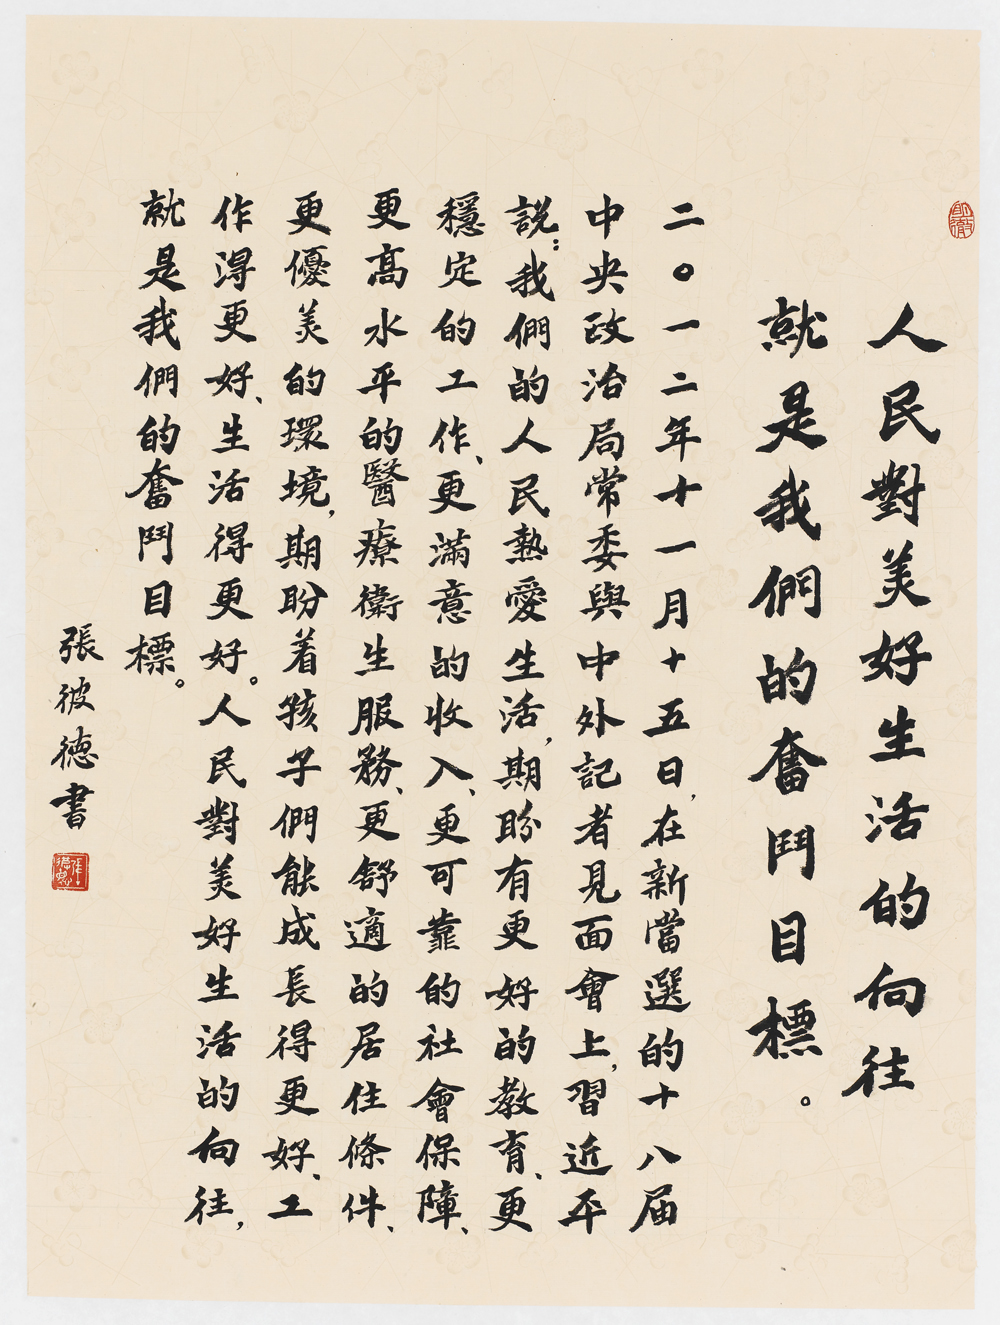 人民對美好生活的向往
就是我們的奮鬥目標。
二〇一二年十一月十五日，在新當選的十八届
中央政治局常委與中外記者見面會上，習近平
説：我們的人民熱愛生活，期盼有更好的教育、更
穩定的工作、更滿意的收入、更可靠的社會保障、
更高水平的醫療衛生服務、更舒適的居住條件、
更優美的環境，期盼着孩子們能成長得更好、工
作得更好、生活得更好。人民對美好生活的向往，
就是我們的奮鬥目標。
張彼德書